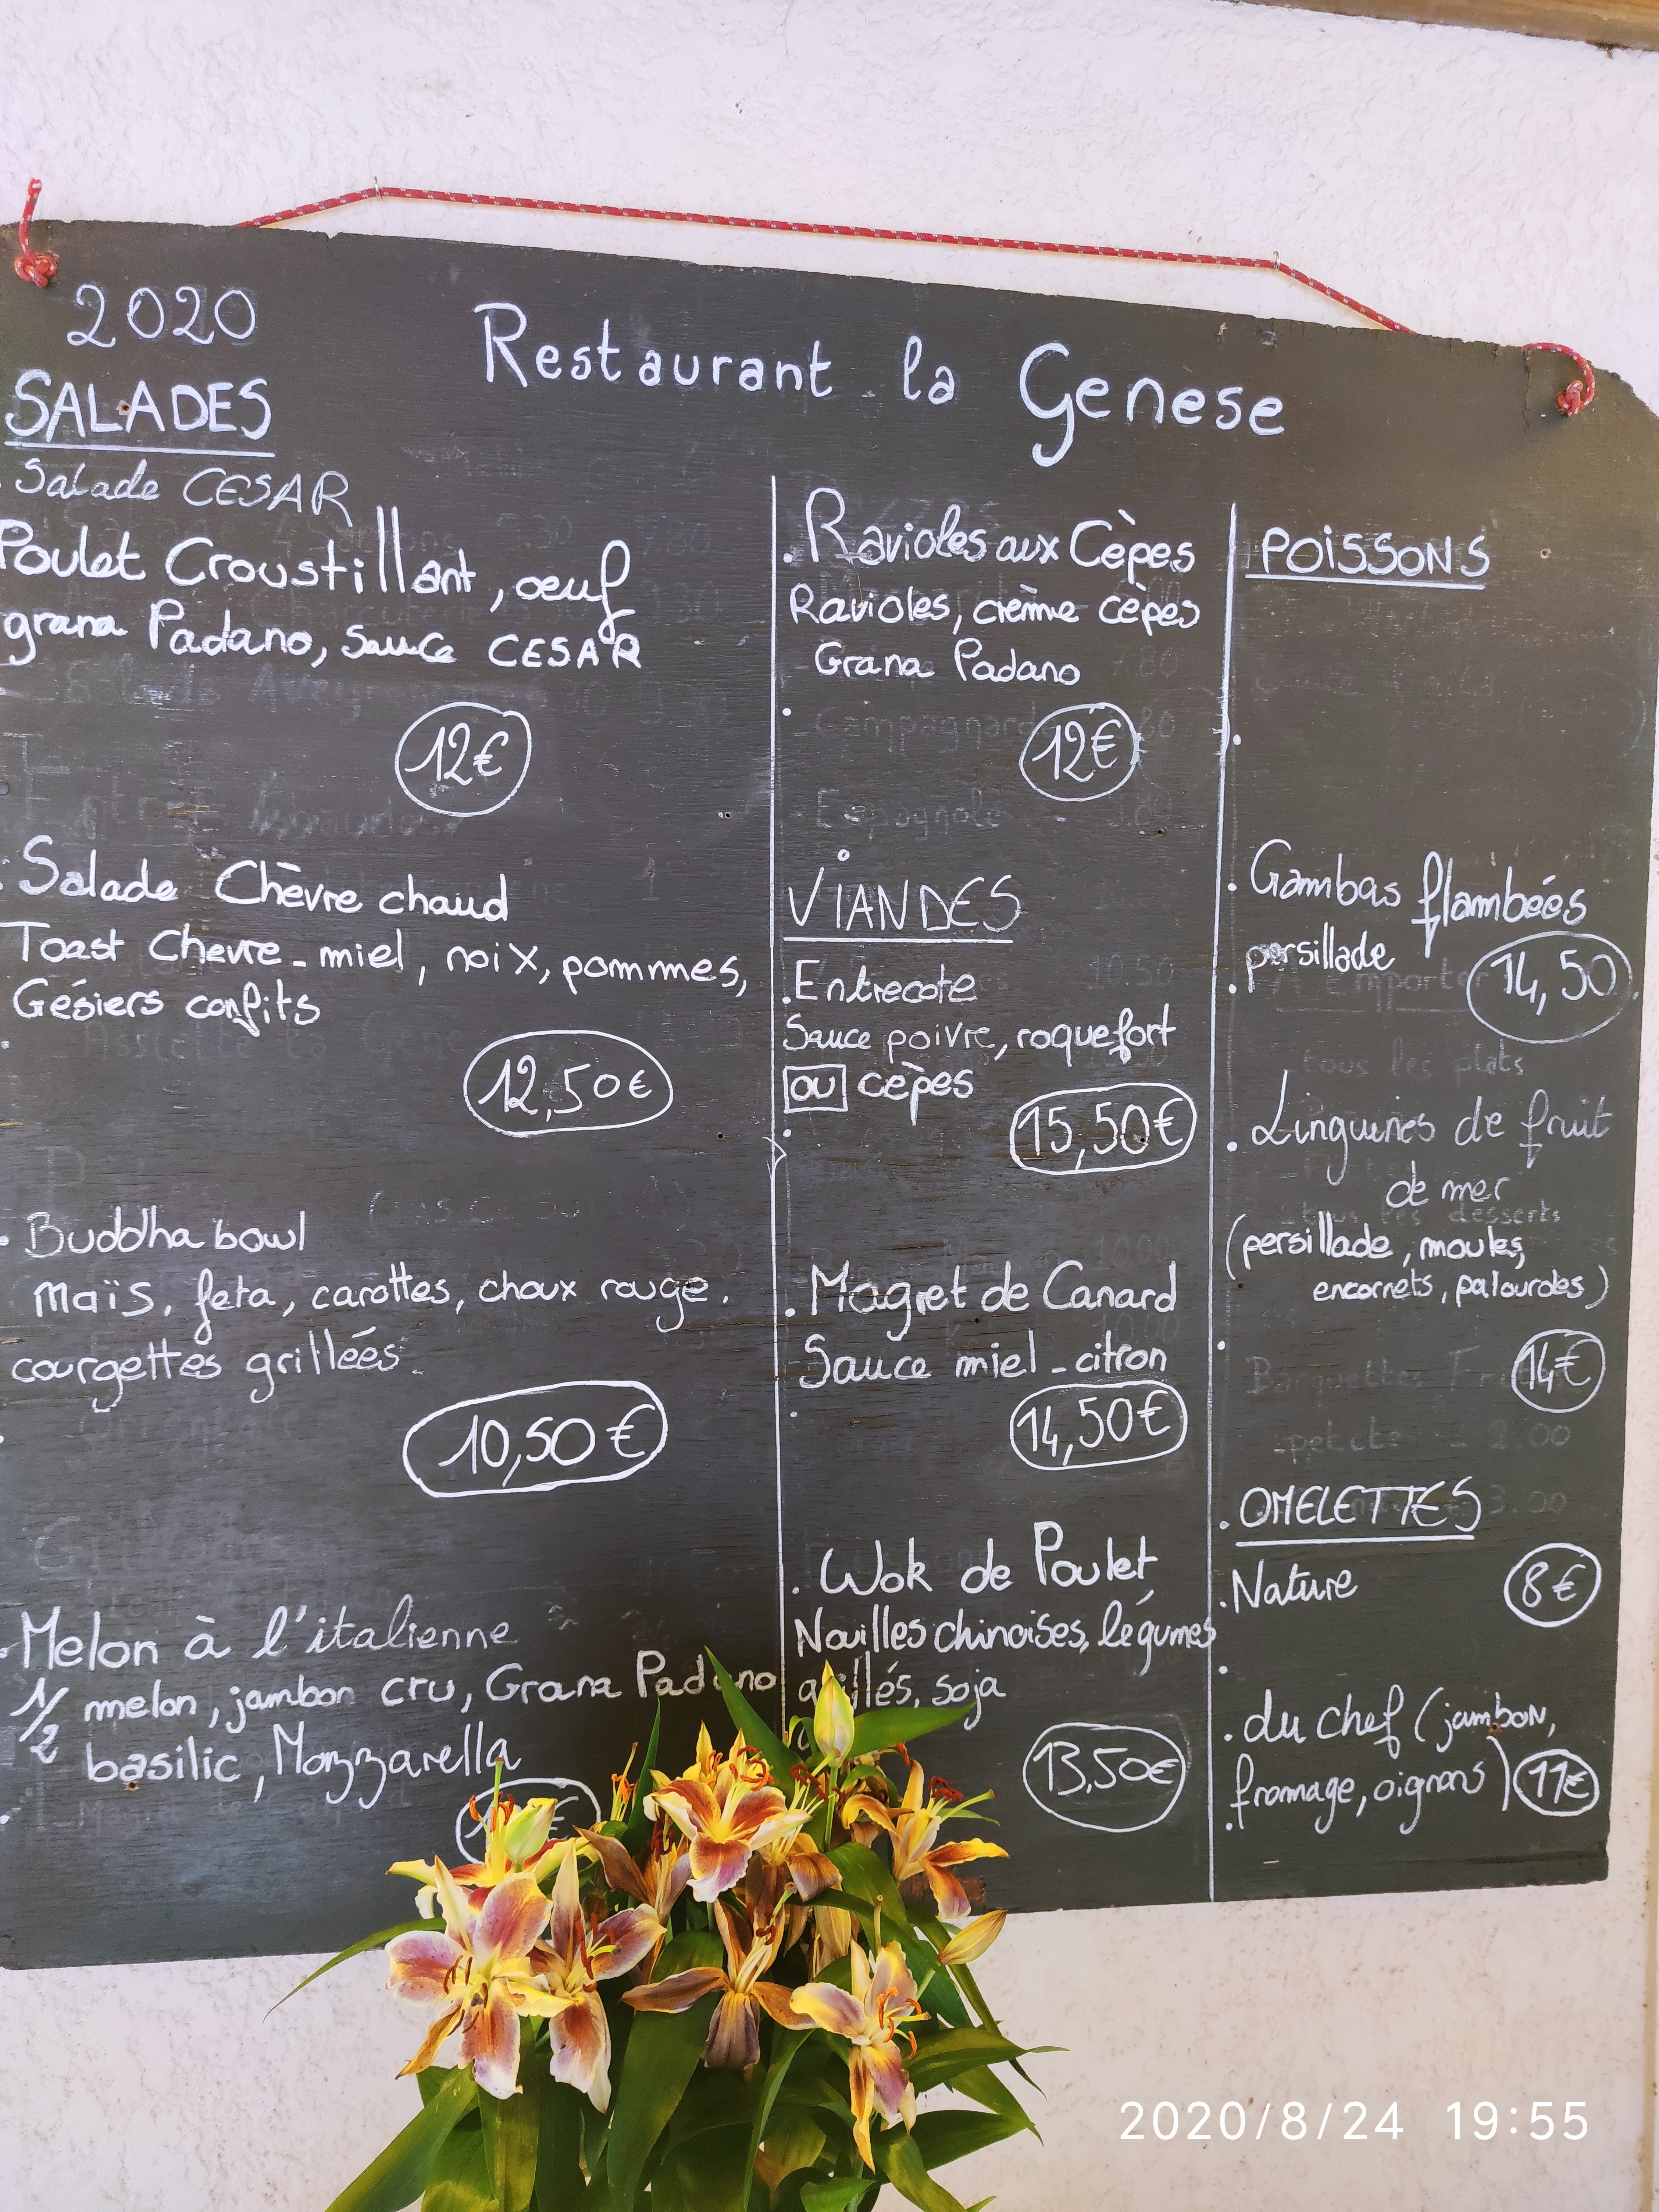 2020
Restaurant la Genese
SALADES
. Salade CESAR
Poulet Croustillant, oeuf
grana Padano, Sauce CESAR
12€
. Salade Chèvre chaud
Toast Chevre - miel, noix, pommes,
Gésiers confits
12,50€
. Buddha bowl
Maïs, feta, carottes, choux rouge.
courgettes grillées.
10,50€
. Melon à l'italienne
1/2 melon, jambon cru, Grana Padano
basilic, Mozzarella
€
. Ravioles aux Cèpes
Ravioles, crème cèpes
Grana Padano
12€
VIANDES
. Entrecote
Sauce poivre, roquefort
ou cèpes
15,50€
. Magret de Canard
Sauce miel - citron
14,50€
. Wok de Poulet
Nouilles chinoises, légumes
soja
13,50€
POISSONS
. Gambas flambées
persillade
14,50
. Linguines de fruit
de mer
(persillade, moules,
encornets, palourdes)
14€
. OMELETTES
. Nature 8€
. du chef (jambon,
fromage, oignons) 11€
2020/8/24 19:55